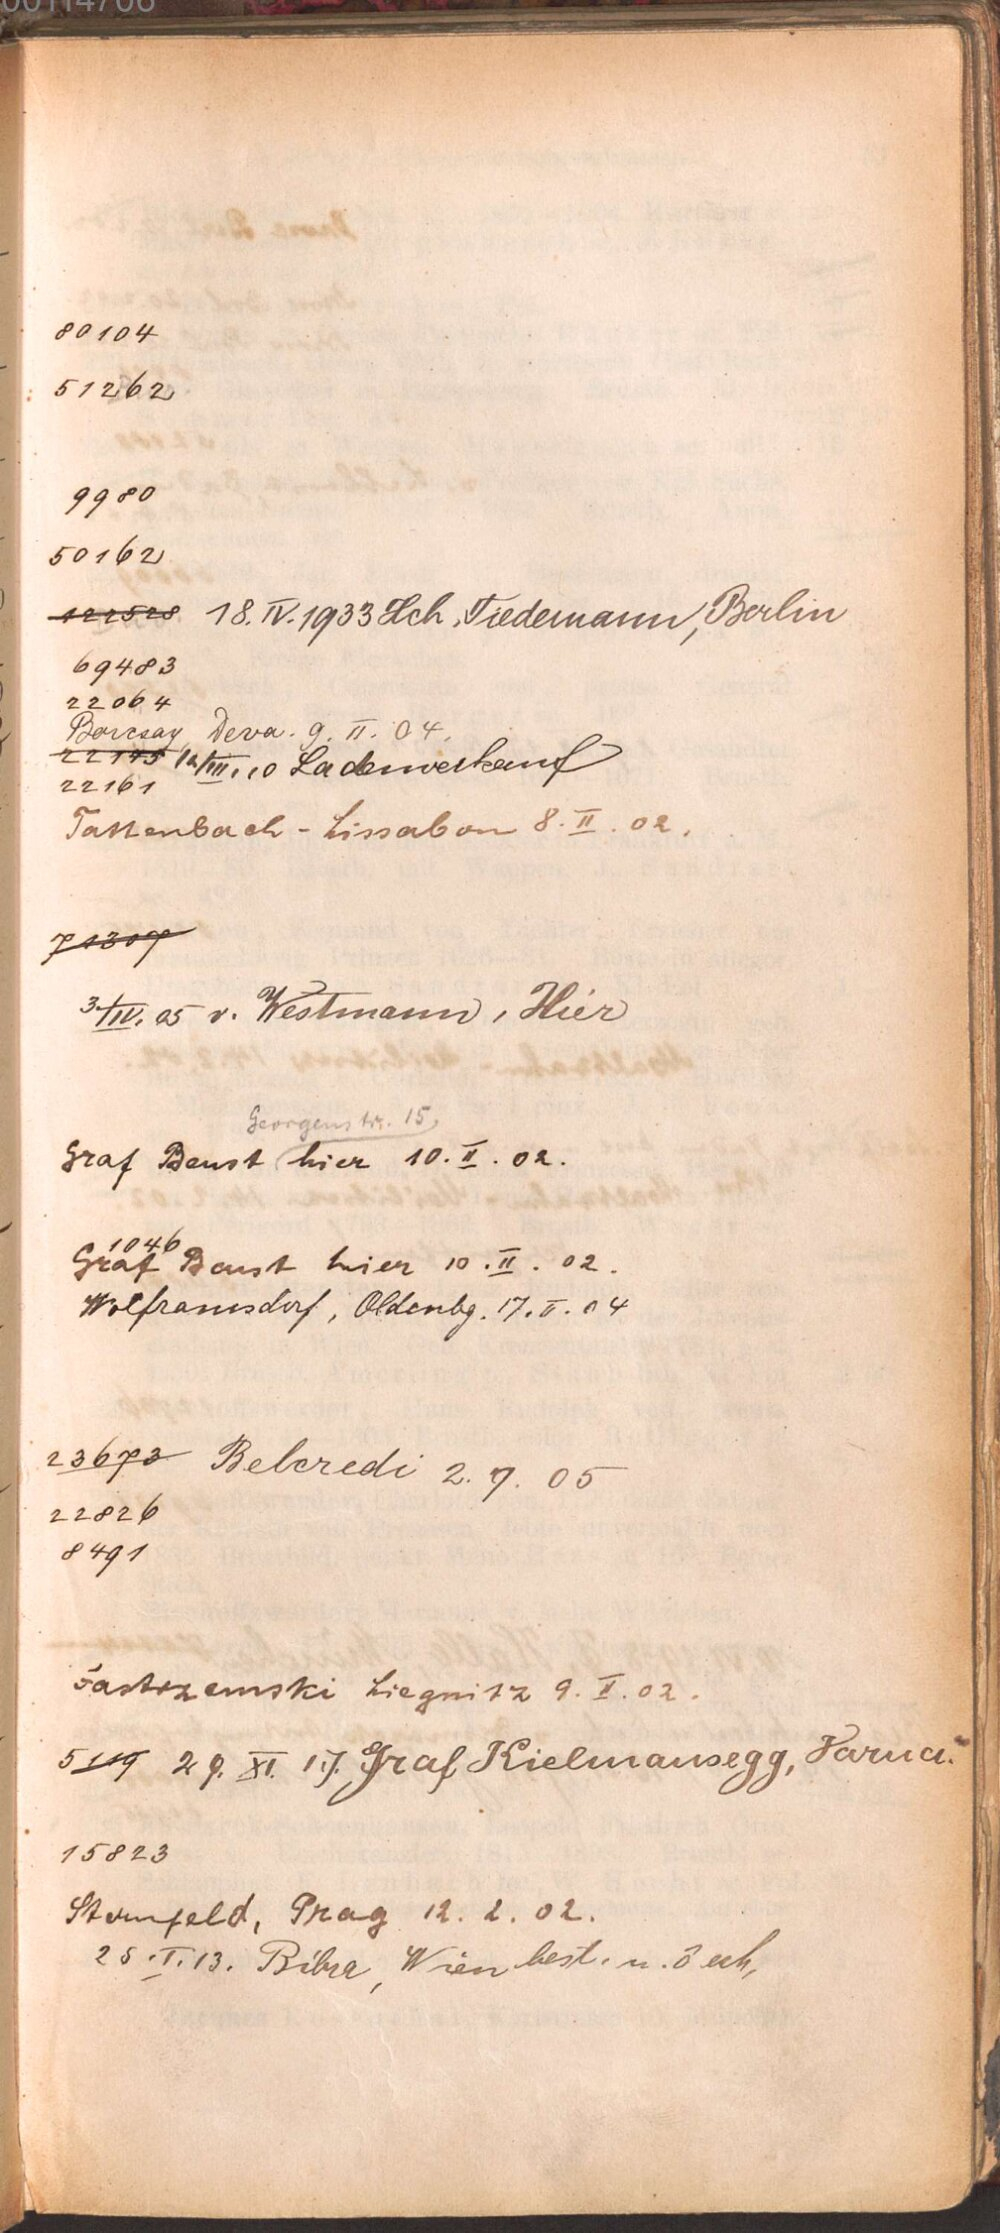 00114706
80104
51262
9980
50162
122528 18.IV.1933 Hch. Tiedemann, Berlin
69483
22064
Borcsay Deva. 9. II. 04.
22145 12/III. 10 Ladenverkauf
22161
Tattenbach - Lissabon 8. II. 02.
71307
3/IV. 05 v. Westmann, Hier
Georgenstr. 15,
Graf Beust hier 10. II. 02.
1046
Graf Beust hier 10. II. 02.
Wolframsdorf, Oldenbg. 17. II. 04
23673 Belcredi 2. 7. 05
22826
8491
Jastrzemski Liegnitz 9. II. 02.
5119 29. XI. 17. Graf Kielmansegg, Varna.
15823
Sternfeld, Prag 12. 2. 02.
25. I. 13. Bibra, Wien best. u.